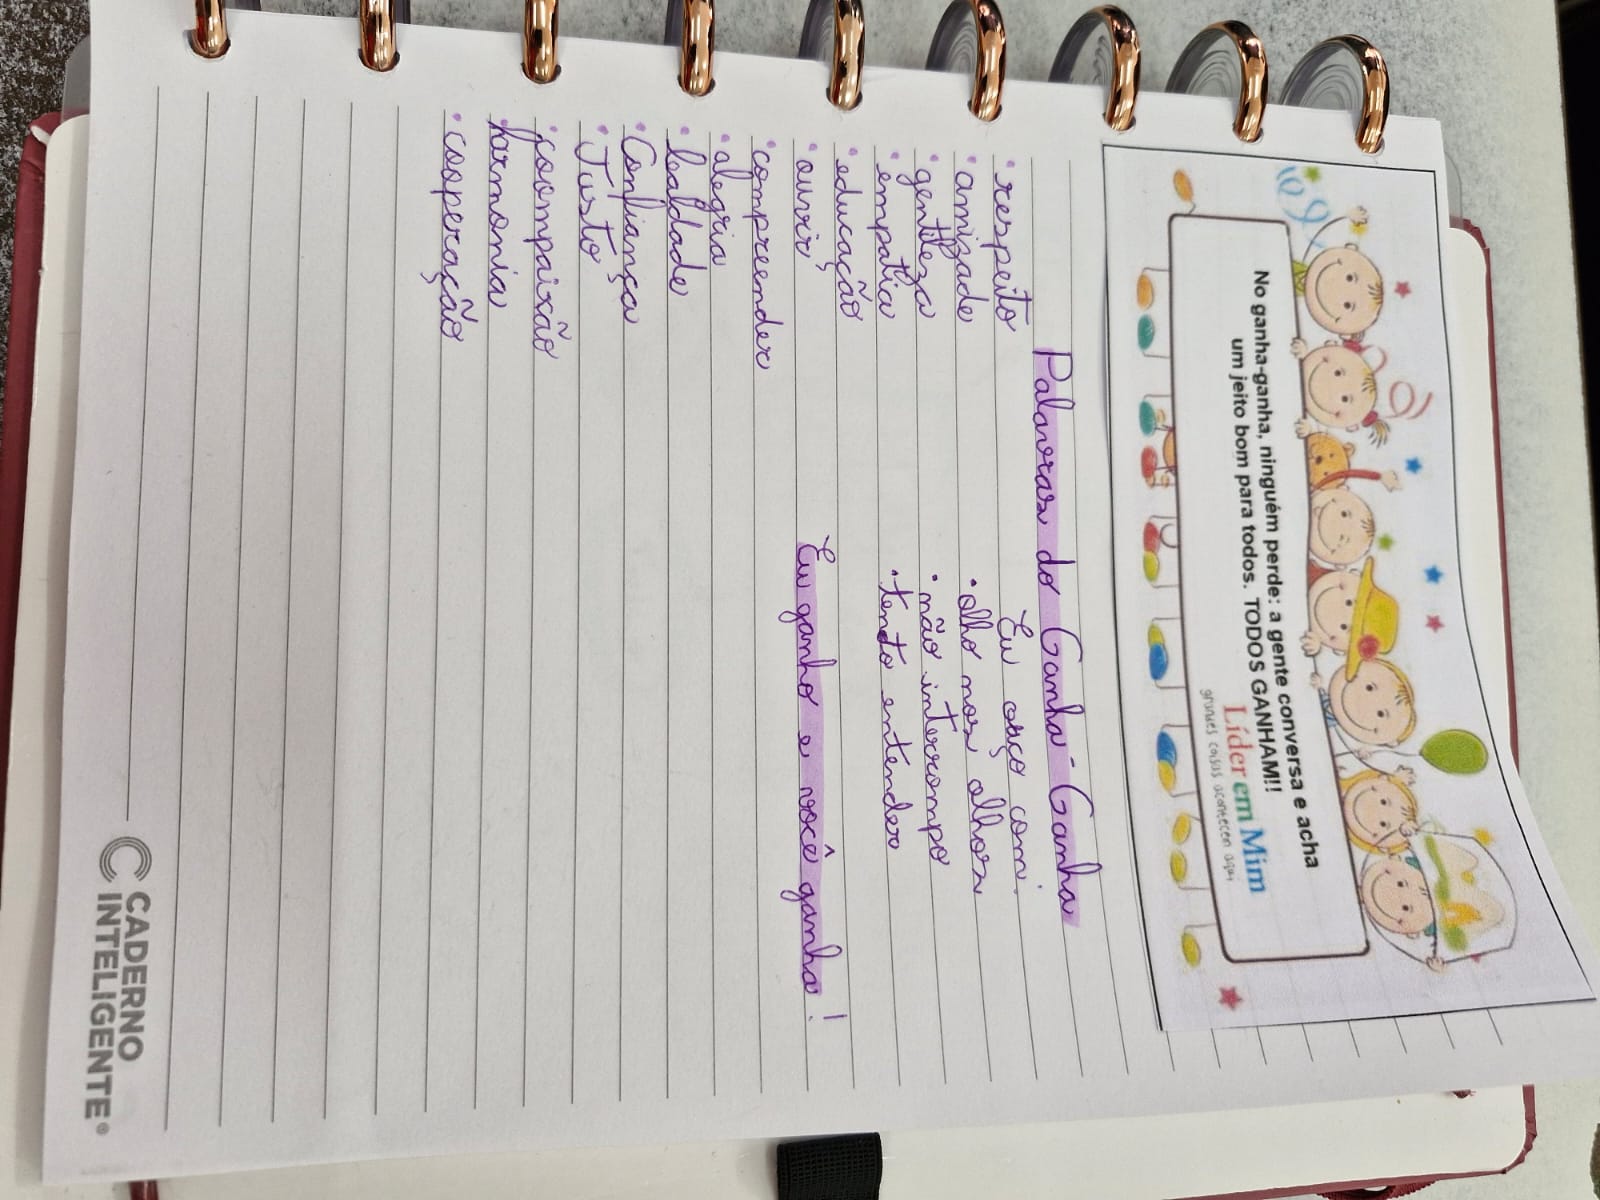 No ganha-ganha, ninguém perde: a gente conversa e acha
um jeito bom para todos. TODOS GANHAM!!
Líder em Mim
grandes coisas acontecem aqui
Palavras do Ganha-Ganha
• respeito
• amizade
• gentileza
• empatia
• educação
• ouvir
• compreender
• alegria
• lealdade
• Confiança
• Justo
• compaixão
• harmonia
• cooperação
Eu ouço com:
• olho nos olhos
• não interrompo
• tento entender
Eu ganho e você ganha!
CADERNO
INTELIGENTE®